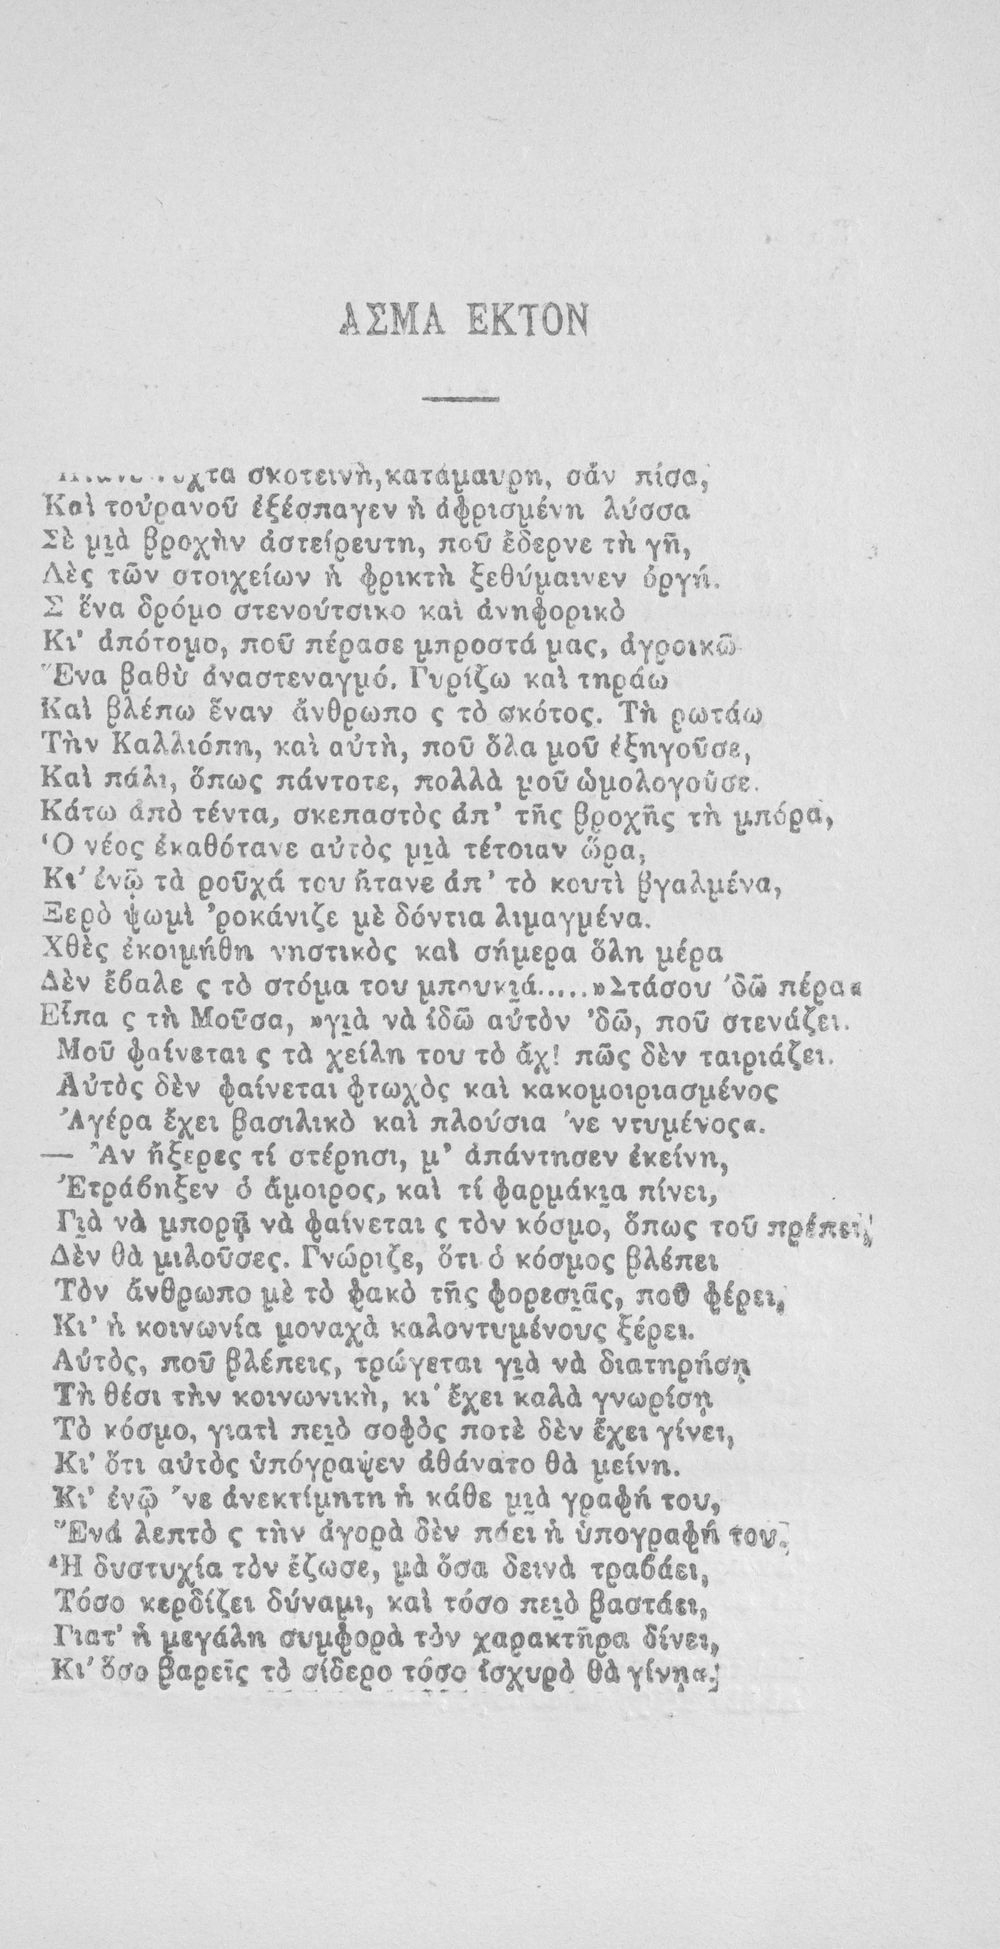 ΑΣΜΑ ΕΚΤΟΝ
σκοτεινὴ, κατάμαυρη, σἂν πίσα,
Καὶ τοὐρανοῦ ἐξέσπαγεν ἡ ἀφρισμένη λύσσα
Σὲ μιὰ βροχὴν ἀστείρευτη, ποῦ ἔδερνε τὴ γῆ,
Λὲς τῶν στοιχείων ἡ φρικτὴ ξεθύμαινεν ὀργή.
Σ ἕνα δρόμο στενούτσικο καὶ ἀνηφορικὸ
Κι' ἀπότομο, ποῦ πέρασε μπροστά μας, ἀγροικῶ
Ἕνα βαθὺ ἀναστεναγμό. Γυρίζω καὶ τηράω
Καὶ βλέπω ἕναν ἄνθρωπο ς τὸ σκότος. Τὴ ρωτάω
Τὴν Καλλιόπη, καὶ αὐτὴ, ποῦ ὅλα μοῦ ἐξηγοῦσε,
Καὶ πάλι, ὅπως πάντοτε, πολλὰ μοῦ ὡμολογοῦσε.
Κάτω ἀπὸ τέντα, σκεπαστὸς ἀπ' τῆς βροχῆς τὴ μπόρα,
Ὁ νέος ἐκαθότανε αὐτὸς μιὰ τέτοιαν ὥρα,
Κι' ἐνῷ τὰ ροῦχά του ἤτανε ἀπ' τὸ κουτὶ βγαλμένα,
Ξερὸ ψωμὶ 'ροκάνιζε μὲ δόντια λιμαγμένα.
Χθὲς ἐκοιμήθη νηστικὸς καὶ σήμερα ὅλη μέρα
Δὲν ἔβαλε ς τὸ στόμα του μπουκιά..... »Στάσου 'δῶ πέρα«
Εἶπα ς τὴ Μοῦσα, »γιὰ νὰ ἰδῶ αὐτὸν 'δῶ, ποῦ στενάζει.
Μοῦ φαίνεται ς τὰ χείλη του τὸ ἄχ! πῶς δὲν ταιριάζει.
Αὐτὸς δὲν φαίνεται φτωχὸς καὶ κακομοιριασμένος
Ἀγέρα ἔχει βασιλικὸ καὶ πλούσια 'νε ντυμένος«.
— Ἂν ἤξερες τί στέρησι, μ' ἀπάντησεν ἐκείνη,
Ἐτράβηξεν ὁ ἄμοιρος, καὶ τί φαρμάκια πίνει,
Γιὰ νὰ μπορῇ νὰ φαίνεται ς τὸν κόσμο, ὅπως τοῦ πρέπει,
Δὲν θὰ μιλοῦσες. Γνώριζε, ὅτι ὁ κόσμος βλέπει
Τὸν ἄνθρωπο μὲ τὸ φακὸ τῆς φορεσιᾶς, ποῦ φέρει,
Κι' ἡ κοινωνία μοναχὰ καλοντυμένους ξέρει.
Αὐτὸς, ποῦ βλέπεις, τρώγεται γιὰ νὰ διατηρήσῃ
Τὴ θέσι τὴν κοινωνικὴ, κι' ἔχει καλὰ γνωρίσῃ
Τὸ κόσμο, γιατὶ πειὸ σοφὸς ποτὲ δὲν ἔχει γίνει,
Κι' ὅτι αὐτὸς ὑπόγραψεν ἀθάνατο θὰ μείνη.
Κι' ἐνῷ 'νε ἀνεκτίμητη ἡ κάθε μιὰ γραφή του,
Ἕνα λεπτὸ ς τὴν ἀγορὰ δὲν πάει ἡ ὑπογραφή του.
Ἡ δυστυχία τὸν ἔζωσε, μὰ ὅσα δεινὰ τραβάει,
Τόσο κερδίζει δύναμι, καὶ τόσο πειὸ βαστάει,
Γιατ' ἡ μεγάλη συμφορὰ τὸν χαρακτῆρα δίνει,
Κι' ὅσο βαρεῖς τὸ σίδερο τόσο ἰσχυρὸ θὰ γίνῃ«.